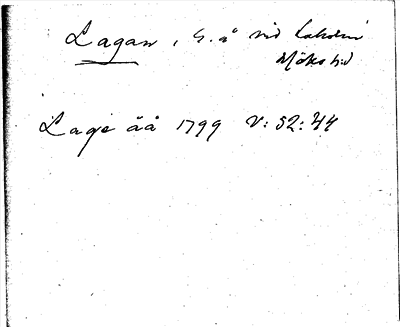 Lagan, h. å vid Laholm
Höks hd
Lage åå 1799 V: 52: 44